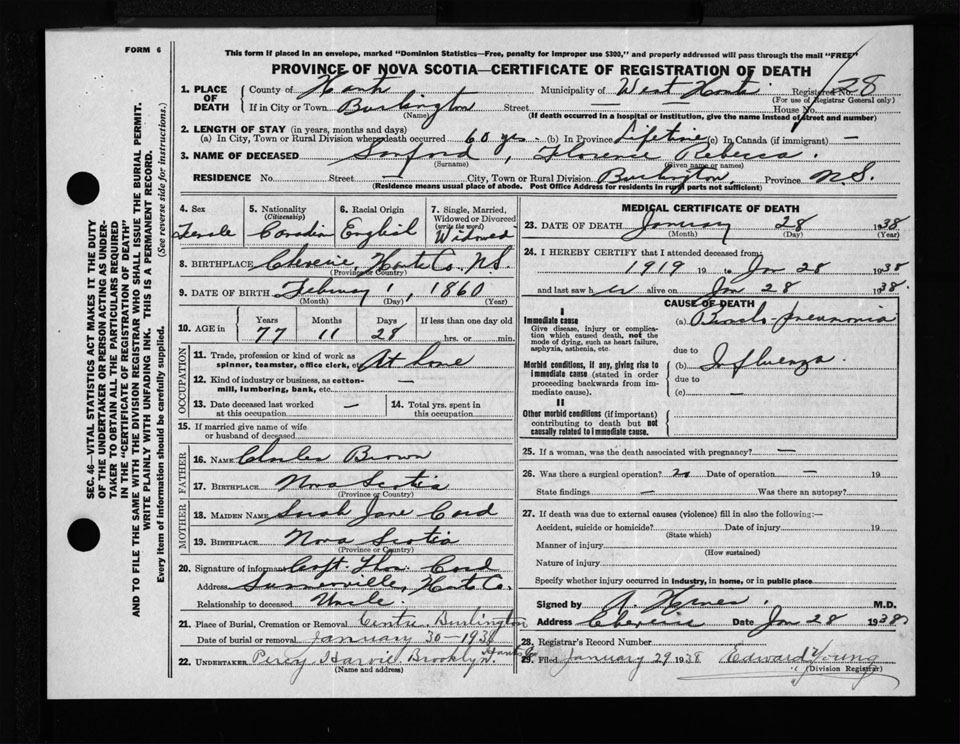 FORM 6
This form if placed in an envelope, marked "Dominion Statistics—Free, penalty for improper use $300," and properly addressed will pass through the mail "FREE"
PROVINCE OF NOVA SCOTIA—CERTIFICATE OF REGISTRATION OF DEATH
1. PLACE OF DEATH
County of Hants Municipality of West Hants Registered No. 28
(For use of Registrar General only)
If in City or Town Burlington Street — House No. —
(Name) (If death occurred in a hospital or institution, give the name instead of street and number)
2. LENGTH OF STAY (in years, months and days)
(a) In City, Town or Rural Division where death occurred 60 yrs. (b) In Province Lifetime (c) In Canada (if immigrant) —
3. NAME OF DECEASED Sanford, Florence Rebecca.
(Surname) (Given name or names)
RESIDENCE No. Street — City, Town or Rural Division Burlington, Province N.S.
(Residence means usual place of abode. Post Office Address for residents in rural parts not sufficient)
4. Sex Female
5. Nationality (Citizenship) Canadian
6. Racial Origin English
7. Single, Married, Widowed or Divorced (write the word) Widowed
8. BIRTHPLACE Cheverie, Hants Co. N.S.
(Province or Country)
9. DATE OF BIRTH February 1, 1860
(Month) (Day) (Year)
10. AGE in Years 77 Months 11 Days 28 If less than one day old hrs. or min.
OCCUPATION
11. Trade, profession or kind of work as spinner, teamster, office clerk, etc. At home
12. Kind of industry or business, as cotton-mill, lumbering, bank, etc. —
13. Date deceased last worked at this occupation —
14. Total yrs. spent in this occupation
15. If married give name of wife or husband of deceased
FATHER
16. NAME Charles Brown
17. BIRTHPLACE Nova Scotia
(Province or Country)
MOTHER
18. MAIDEN NAME Sarah Jane Card
19. BIRTHPLACE Nova Scotia
(Province or Country)
20. Signature of informant Capt. Thos. Card
Address Summerville, Hants Co.
Relationship to deceased Uncle
21. Place of Burial, Cremation or Removal Centre Burlington
Date of burial or removal January 30 — 1938
22. UNDERTAKER Percy Harvie Brooklyn. Hants Co
(Name and address)
MEDICAL CERTIFICATE OF DEATH
23. DATE OF DEATH January 28 1938
(Month) (Day) (Year)
24. I HEREBY CERTIFY that I attended deceased from
1919 19 to Jan 28 1938
and last saw her alive on Jan 28 1938.
CAUSE OF DEATH
I
Immediate cause (a) Broncho-pneumonia
Give disease, injury or complication which caused death, not the mode of dying, such as heart failure, asphyxia, asthenia, etc.
due to
Morbid conditions, if any, giving rise to immediate cause (stated in order proceeding backwards from immediate cause).
(b) Influenza.
due to
(c) —
II
Other morbid conditions (if important) contributing to death but not causally related to immediate cause.
25. If a woman, was the death associated with pregnancy? —
26. Was there a surgical operation? no Date of operation — 19
State findings — Was there an autopsy?
27. If death was due to external causes (violence) fill in also the following:—
Accident, suicide or homicide? Date of injury 19
(State which)
Manner of injury
(How sustained)
Nature of injury
Specify whether injury occurred in industry, in home, or in public place
Signed by M.D.
Address Cheverie Date Jan 28 1938
28. Registrar's Record Number
29. Filed January 29 1938 Edward Young
(Division Registrar)
SEC. 46—VITAL STATISTICS ACT MAKES IT THE DUTY
OF THE UNDERTAKER OR PERSON ACTING AS UNDERTAKER
TO OBTAIN ALL THE PARTICULARS REQUIRED
IN THE "CERTIFICATE OF REGISTRATION OF DEATH"
AND TO FILE THE SAME WITH THE DIVISION REGISTRAR WHO SHALL ISSUE THE BURIAL PERMIT.
WRITE PLAINLY WITH UNFADING INK. THIS IS A PERMANENT RECORD.
Every item of information should be carefully supplied. (See reverse side for instructions.)